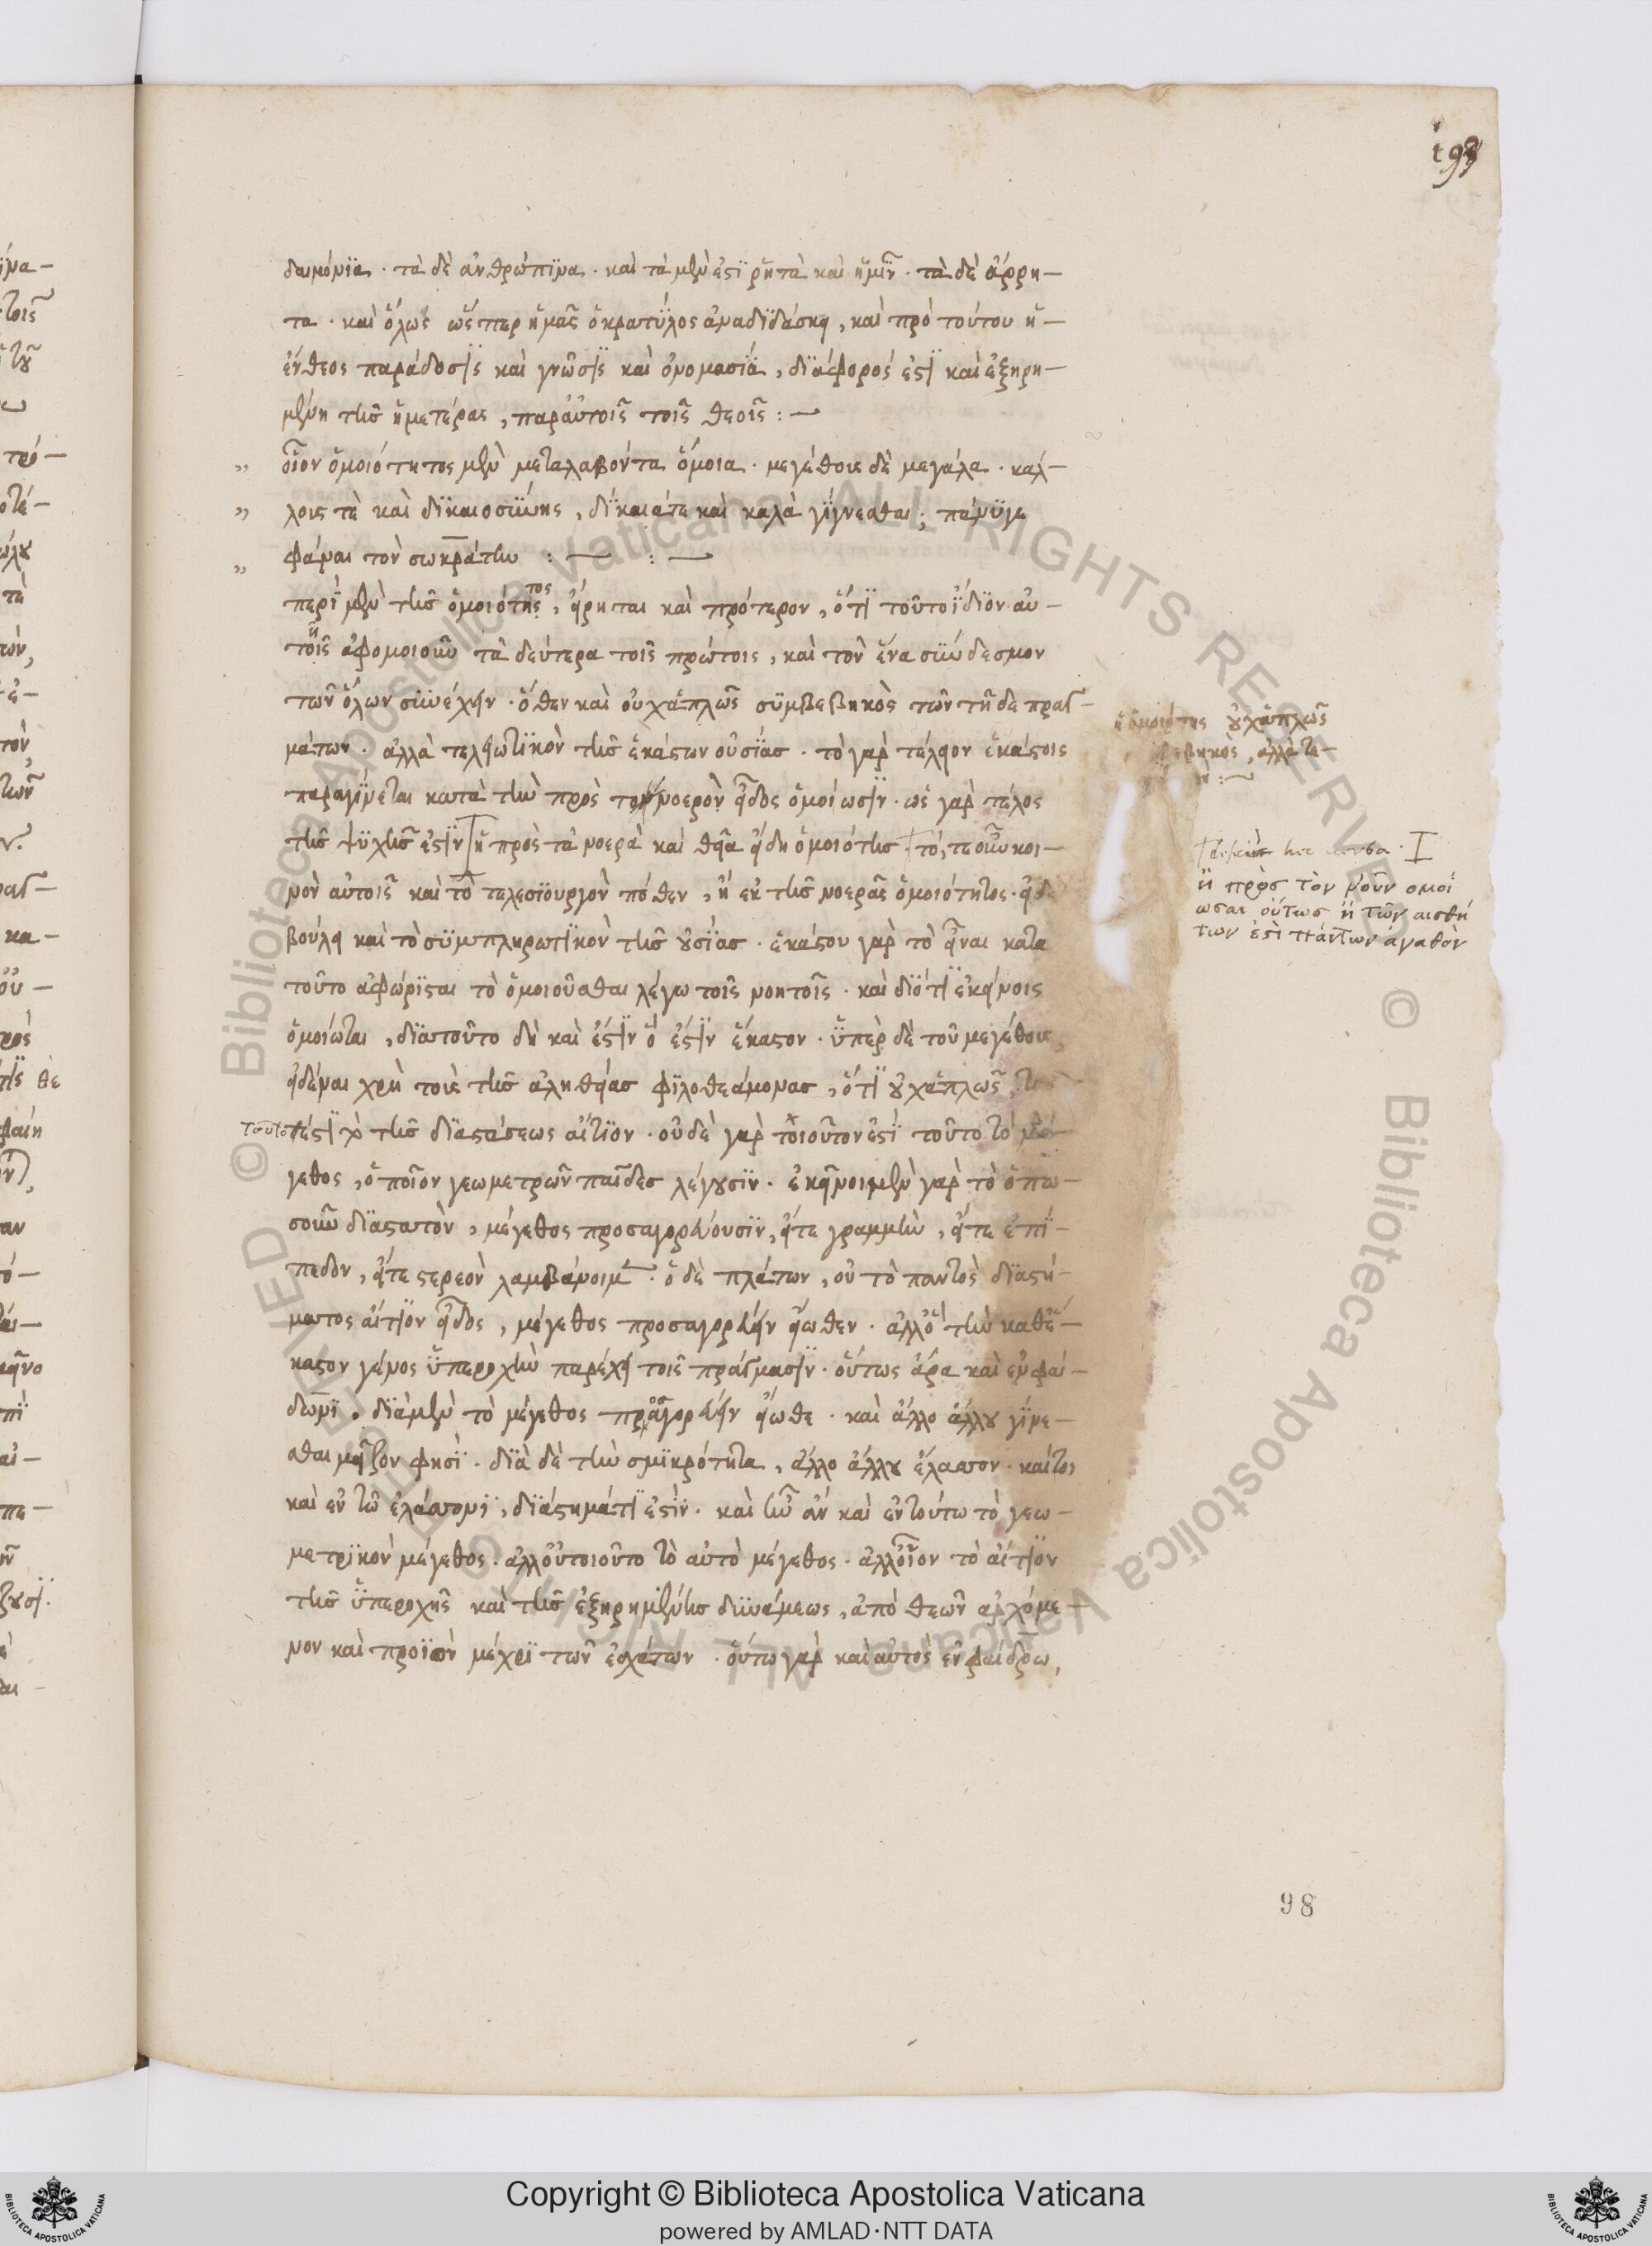 193
δαιμόνϊα · τὰ δὲ ἀνθρώπϊνα · καὶ τὰ μὲν ἐστὶ ῥητὰ καὶ ἡμῖν · τὰ δὲ ἄρρη-
τα · καὶ ὅλως ὥσπερ ἡμᾶς ὁ κρατύλος ἀναδϊδάσκει, καὶ πρὸ τούτου ἡ-
ἔνθεος παράδοσϊς καὶ γνῶσϊς καὶ ὀνομασία, δϊάφορός ἐστϊ καὶ ἐξηρη-
μένη τῆς ἡμετέρας, παρ' αὐτοῖς τοῖς θεοῖς :-
„ οἷον ὁμοιότητος μὲν μεταλαβόντα ὅμοια · μεγέθους δὲ μεγάλα · κάλ-
„ λους τὲ καὶ δϊκαιοσύνης, δίκαιά τε καὶ καλὰ γίγνεσθαι ; πάνυ γε
„ φάναι τὸν σωκράτην :- :-
περὶ μὲν τῆς ὁμοιότητος, εἴρηται καὶ πρότερον, ὅτϊ τοῦτο ἴδϊον αὐ-
τῆς ἀφομοιοῦν τὰ δεύτερα τοῖς πρώτοις, καὶ τὸν ἕνα σύνδεσμον
τῶν ὅλων συνέχειν · ὅθεν καὶ οὐχ ἁπλῶς συμβεβηκὸς τῶν τῆδε πραγ-
μάτων · ἀλλὰ τελειωτϊκὸν τῆς ἑκάστων οὐσίας · τὸ γὰρ τέλειον ἑκάστοις
παραγίνεται κατὰ τὴν πρὸς τὸ νοερὸν εἶδος ὁμοίωσϊν · ὡς γὰρ τέλος
τῆς ψυχῆς ἐστϊν ἡ πρὸς τὰ νοερὰ καὶ θεῖα εἴδη ὁμοιότης · τό, τε οὖν κοι-
νὸν αὐτοῖς καὶ τὸ τελεσϊουργὸν πόθεν, ἢ ἐκ τῆς νοερᾶς ὁμοιότητος · εἰ δὲ
βούλει καὶ τὸ συμπληρωτϊκὸν τῆς οὐσίας · ἑκάστου γὰρ τὸ εἶναι κατὰ
τοῦτο ἀφώρισται τὸ ὁμοιοῦσθαι λέγω τοῖς νοητοῖς · καὶ δϊότϊ ἐκείνοις
ὁμοίωται, δϊὰ τοῦτο δὴ καὶ ἔστϊν ὅ ἐστϊν ἕκαστον · ὑπὲρ δὲ τοῦ μεγέθους,
εἰδέναι χρὴ τοὺς τῆς ἀληθείας φϊλοθεάμονας, ὅτϊ οὐχ ἁπλῶς
τουτοτέστϊ τῆς δϊαστάσεως αἴτϊον · οὐδὲ γὰρ τοιοῦτον ἐστὶ τοῦτο τὸ μέ-
γεθος, ὁποῖον γεωμετρῶν παῖδες λέγουσϊν · ἐκεῖνοι μὲν γὰρ τὸ ὁπω-
σοῦν δϊαστατὸν, μέγεθος προσαγορεύουσϊν, εἴτε γραμμὴν, εἴτε ἐπί-
πεδον, εἴτε στερεὸν λαμβάνοιμεν · ὁ δὲ πλάτων, οὐ τὸ παντὸς δϊαστή-
ματος αἴτϊον εἶδος, μέγεθος προσαγορεύειν εἴωθεν · ἀλλ' ὃ τὴν καθ' ἕ-
καστον γένος ὑπεροχὴν παρέχει τοῖς πράγμασϊν · οὕτως ἄρα καὶ ἐν φαί-
δωνϊ · δϊὰ μὲν τὸ μέγεθος προσαγορεύειν εἴωθε · καὶ ἄλλο ἄλλου γίνε-
σθαι μεῖζον φησὶ · δϊὰ δὲ τὴν σμϊκρότητα, ἄλλο ἄλλου ἔλασσον · καίτοι
καὶ ἐν τῶ ἐλάττονϊ, δϊάστημά τϊ ἐστὶν · καὶ ἦν ἂν καὶ ἐν τούτω τὸ γεω-
μετρϊκὸν μέγεθος · ἀλλ' οὐ τοιοῦτο τὸ αὐτὸ μέγεθος · ἀλλ' οἷον τὸ αἴτϊον
τῆς ὑπεροχῆς καὶ τῆς ἐξηρημένης δυνάμεως, ἀπὸ θεῶν ἀρχόμε-
νον καὶ προϊὸν μέχρϊ τῶν ἐσχάτων · οὕτω γὰρ καὶ αὐτὸς ἐν φαίδρω,
ἡ ὁμοιότης οὐχ ἁπλῶς
βεβηκὸς, ἀλλὰ τε-
ἡ πρὸς τὸν νοῦν ὁμοί
ωσαι οὕτως ἡ τῶν αἰσθη
των ἐστὶ πάντων ἀγαθὸν
98
© Biblioteca Apostolica Vaticana ALL RIGHTS RESERVED © Biblioteca Apostolica Vaticana ALL RIGHTS RESERVED
Copyright © Biblioteca Apostolica Vaticana
powered by AMLAD·NTT DATA
BIBLIOTECA APOSTOLICA VATICANA
BIBLIOTECA APOSTOLICA VATICANA